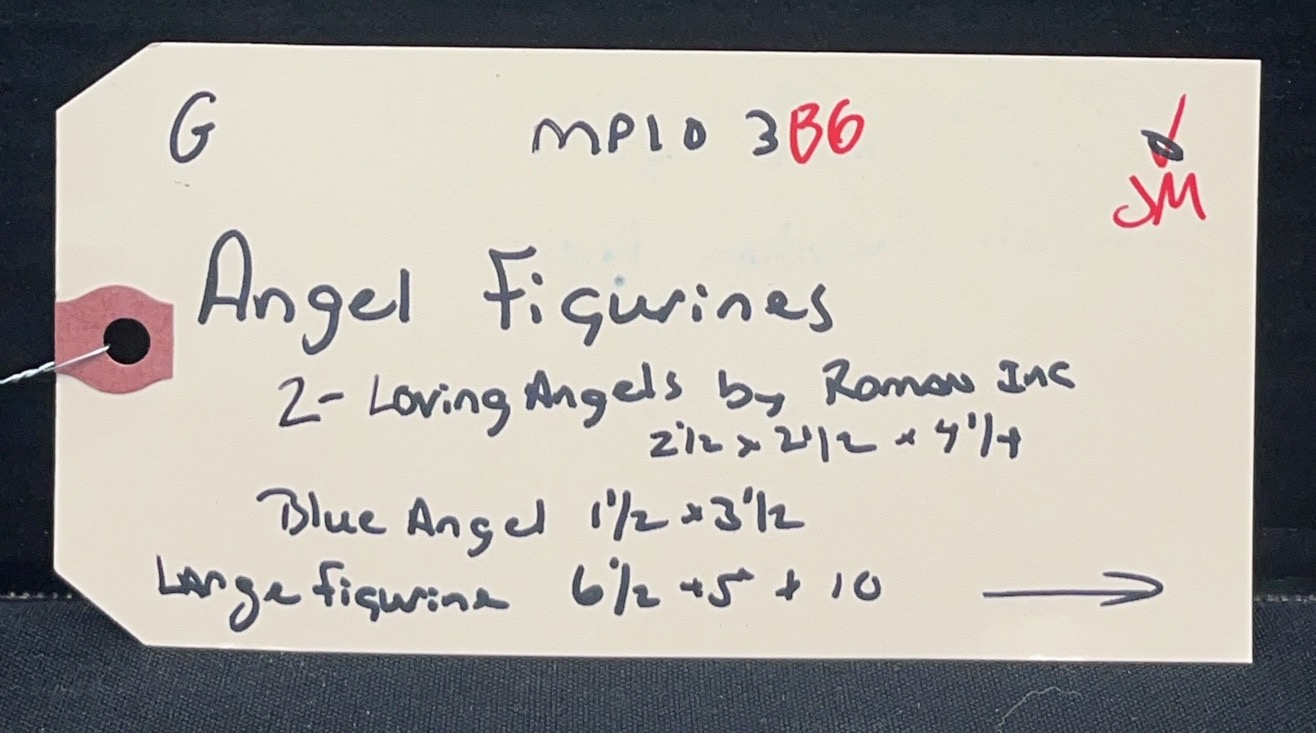 G MP10 3B6
JM
Angel Figurines
2- Loving Angels by Roman Inc
2 1/2 x 2 1/2 x 4 1/4
Blue Angel 1 1/2 x 3 1/2
Large figurine 6 1/2 x 5 x 10 →